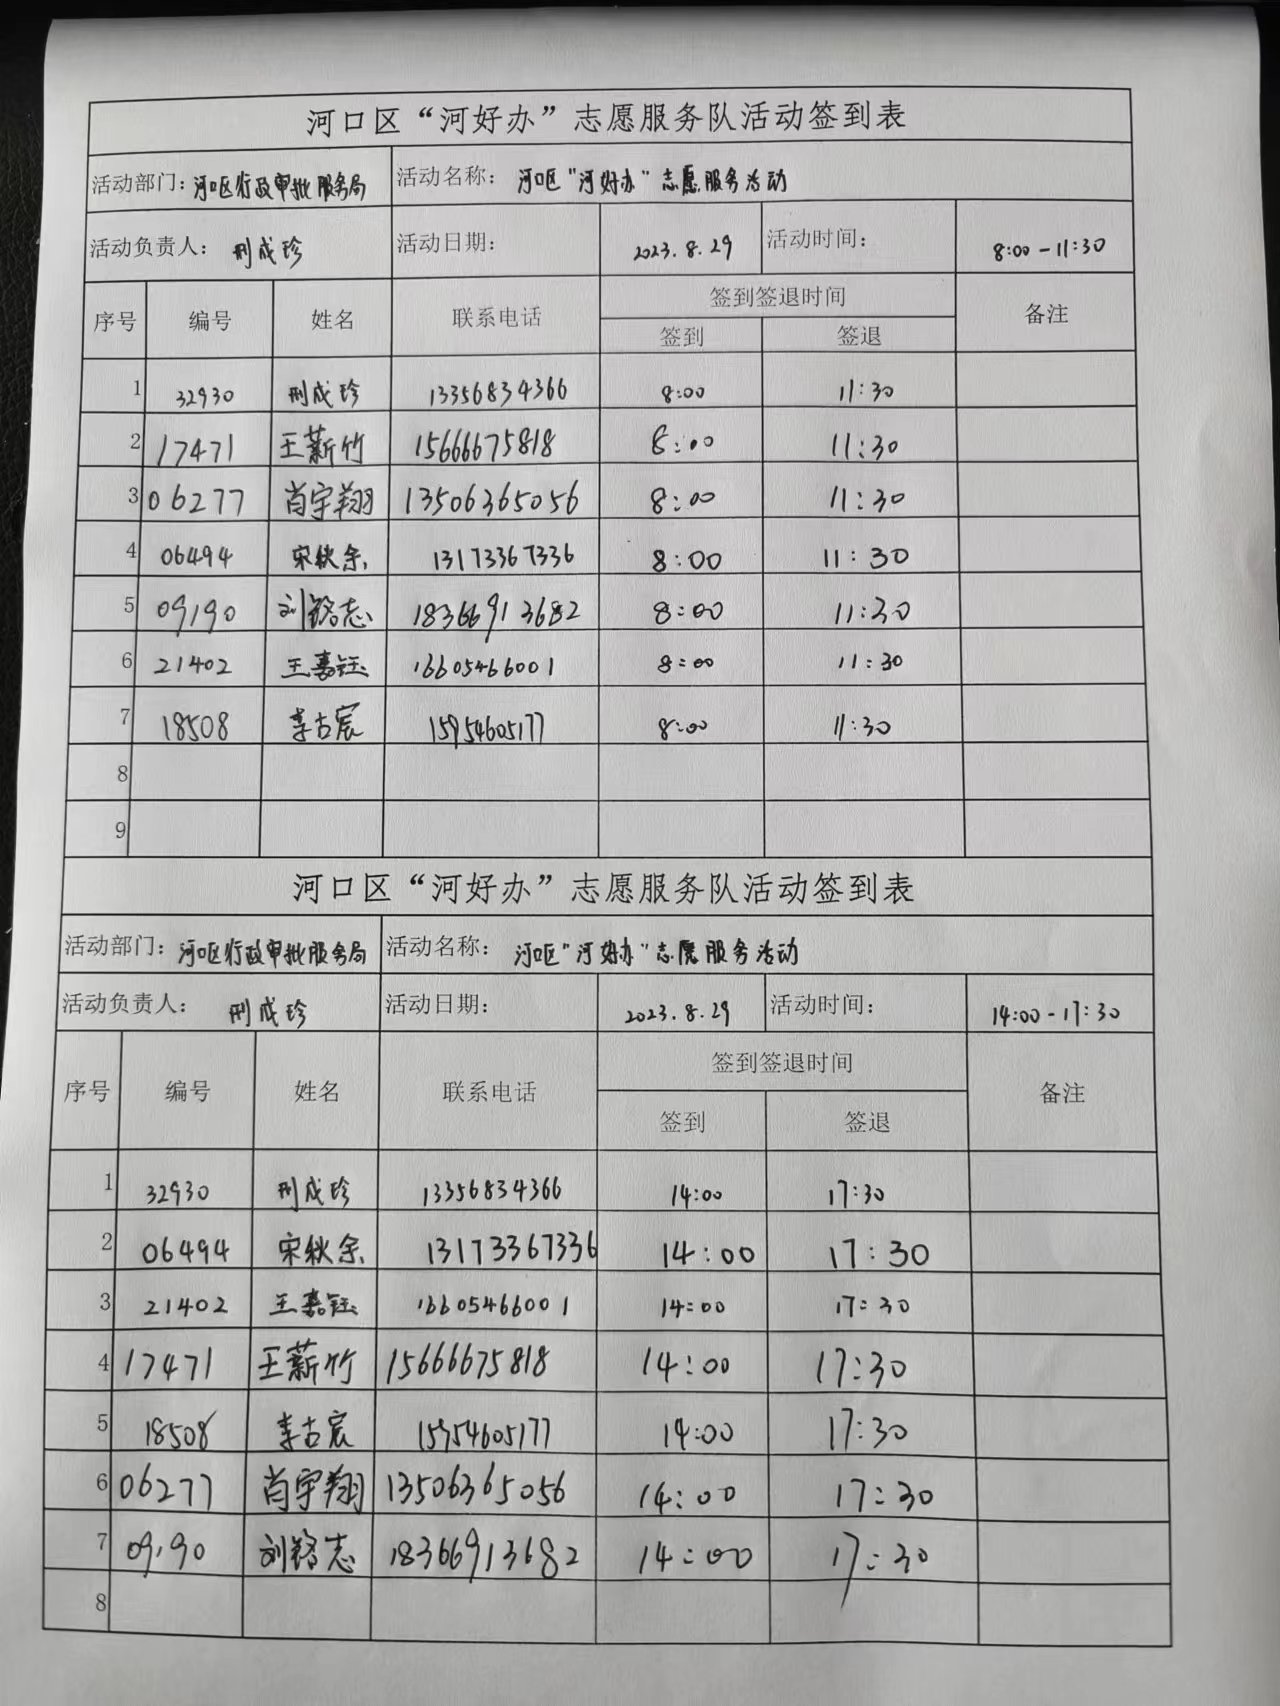 河口区“河好办”志愿服务队活动签到表
活动部门：河口区行政审批服务局 活动名称：河口区“河好办”志愿服务活动
活动负责人：邢成珍 活动日期： 2023.8.29 活动时间： 8:00-11:30
序号 编号 姓名 联系电话 签到签退时间 备注
签到 签退
1 32930 邢成珍 13356834366 8:00 11:30
2 17471 王薪竹 15666675818 8:00 11:30
3 06277 肖宇翔 13506365056 8:00 11:30
4 06494 宋秋余 13173367336 8:00 11:30
5 09190 刘铭志 18366913682 8:00 11:30
6 21402 王嘉钰 16605466001 8:00 11:30
7 18508 李古宸 15954605177 8:00 11:30
8
9
河口区“河好办”志愿服务队活动签到表
活动部门：河口区行政审批服务局 活动名称：河口区“河好办”志愿服务活动
活动负责人：邢成珍 活动日期： 2023.8.29 活动时间： 14:00-17:30
序号 编号 姓名 联系电话 签到签退时间 备注
签到 签退
1 32930 邢成珍 13356834366 14:00 17:30
2 06494 宋秋余 13173367336 14:00 17:30
3 21402 王嘉钰 16605466001 14:00 17:30
4 17471 王薪竹 15666675818 14:00 17:30
5 18508 李古宸 15954605177 14:00 17:30
6 06277 肖宇翔 13506365056 14:00 17:30
7 09190 刘铭志 18366913682 14:00 17:30
8